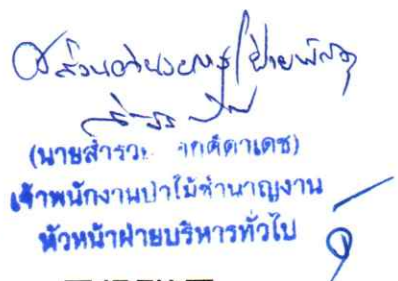 ส่วนอำนวยการ/ฝ่ายพัสดุ
(นายสำรวย
เจ้าพนักงานป่าไม้ชำนาญงาน
หัวหน้าฝ่ายบริหารทั่วไป